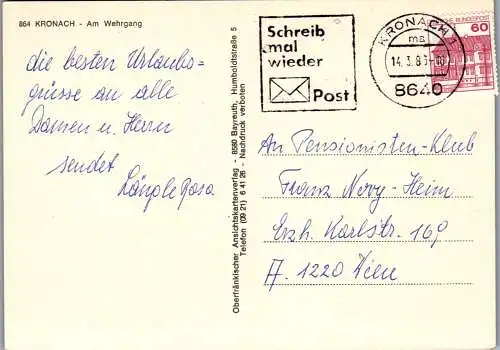 864 KRONACH - Am Wehrgang
die besten Urlaubs-
grüsse an alle
Damen u. Herrn
sendet
Rosa
Oberfränkischer Ansichtskartenverlag - 8580 Bayreuth, Humboldtstraße 5
Telefon (09 21) 6 41 26 - Nachdruck verboten
Schreib
mal
wieder
Post
KRONACH 1
ma
14.3.8
8640
BUNDESPOST
60
An Pensionisten-Klub
Franz Novy-Heim
Erzh. Karlstr. 169
A. 1220 Wien